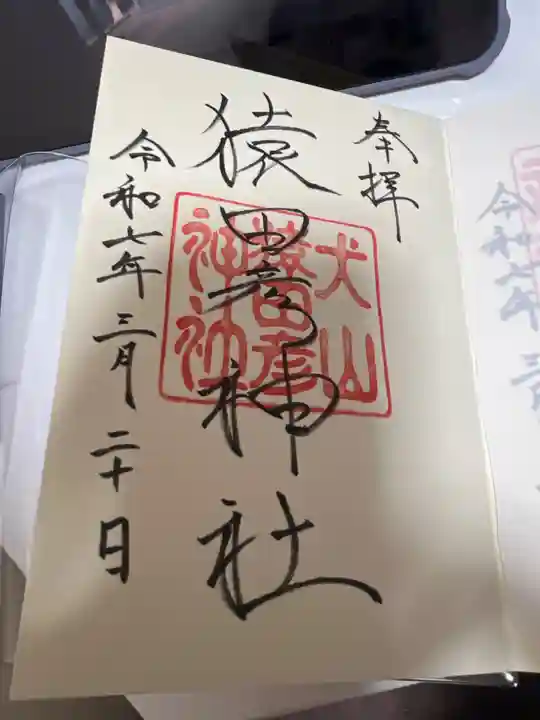 奉拝
猿田彦神社
犬山
猿田彦
神社
令和七年三月二十日
令和七年三